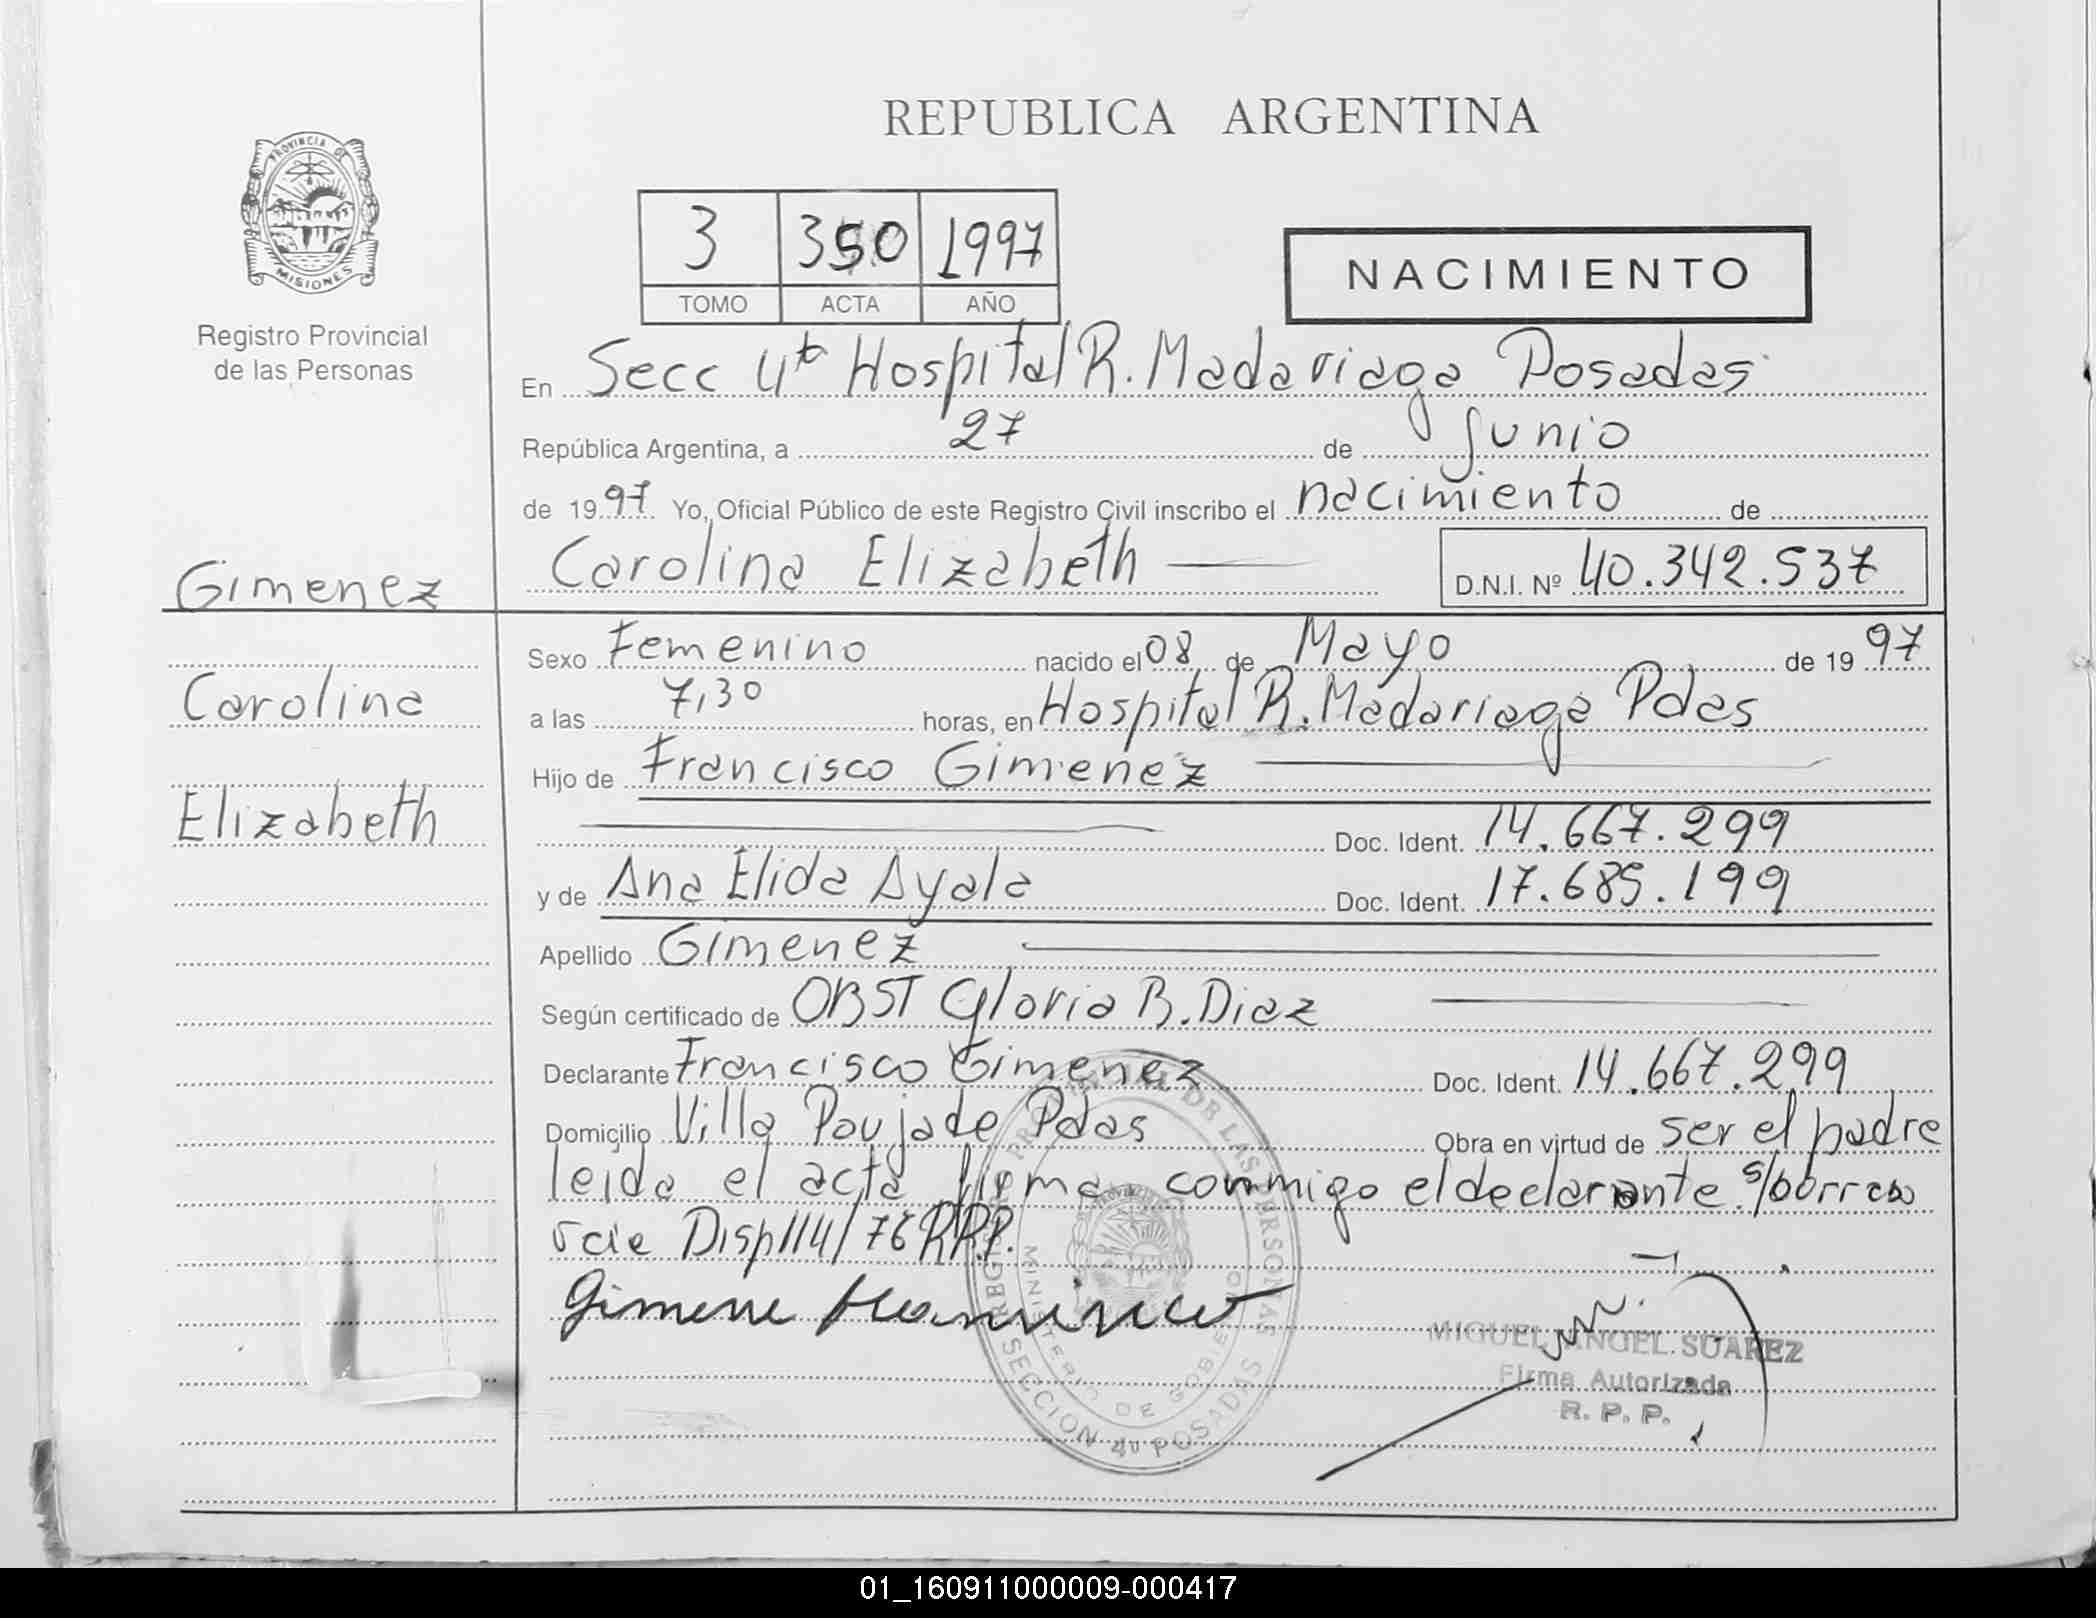 REPUBLICA ARGENTINA
PROVINCIA DE
MISIONES
Registro Provincial
de las Personas
3 350 1997
TOMO ACTA AÑO
NACIMIENTO
En Secc 4ta Hospital R. Madariaga Posadas
República Argentina, a 27 de Junio
de 1997 Yo, Oficial Público de este Registro Civil inscribo el nacimiento de
Carolina Elizabeth D.N.I. Nº 40.342.537
Gimenez
Carolina
Elizabeth
Sexo Femenino nacido el 08 de Mayo de 1997
a las 7,30 horas, en Hospital R. Madariaga Pdas
Hijo de Francisco Gimenez
Doc. Ident. 14.667.299
y de Ana Elida Ayala Doc. Ident. 17.685.199
Apellido Gimenez
Según certificado de OBST Gloria B. Diaz
Declarante Francisco Gimenez Doc. Ident. 14.667.299
Domicilio Villa Poujade Pdas Obra en virtud de ser el padre
leida el acta firma conmigo el declarante. s/borrado
vale Disp 114/76 R.P.P.
Gimene
REGISTRO PROVINCIAL DE LAS PERSONAS
MINISTERIO DE GOBIERNO
SECCION 4ta POSADAS
MIGUEL ANGEL SUAREZ
Firma Autorizada
R. P. P.
01_160911000009-000417